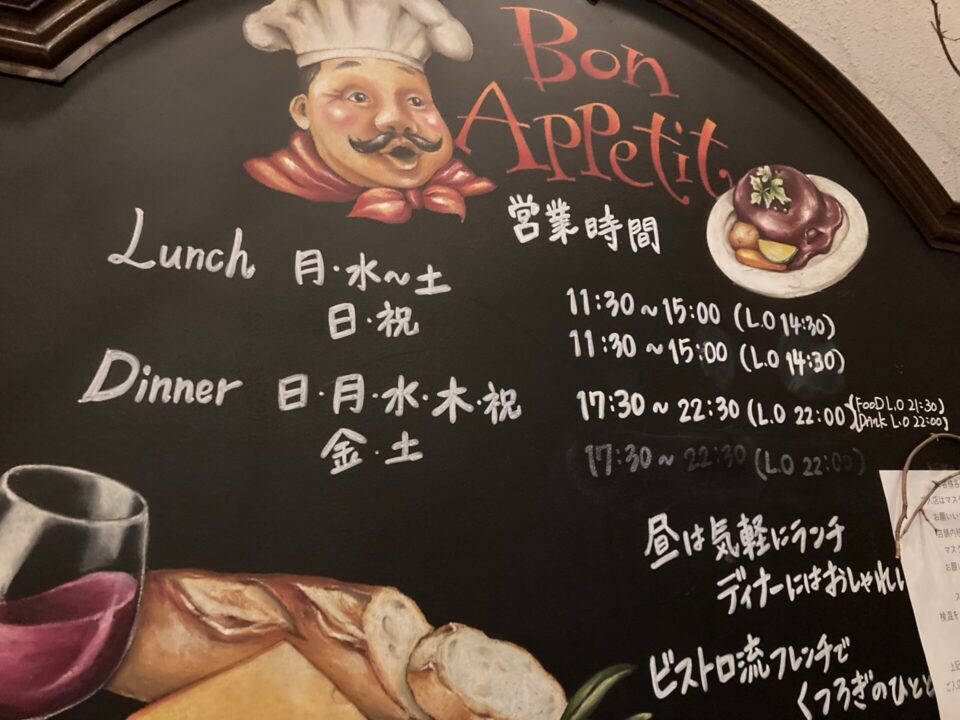 Bon
Appetit
営業時間
Lunch 月・水～土 11:30～15:00 (L.O 14:30)
日・祝 11:30～15:00 (L.O 14:30)
Dinner 日・月・水・木・祝 17:30～22:30 (L.O 22:00) (FOOD L.O 21:30)
(Drink L.O 22:00)
金・土 17:30～22:30 (L.O 22:00)
昼は気軽にランチ
ディナーにはおしゃれ
ビストロ流フレンチで
くつろぎのひと
入店はマス
お願いい
店舗内
マス
お願
検温を